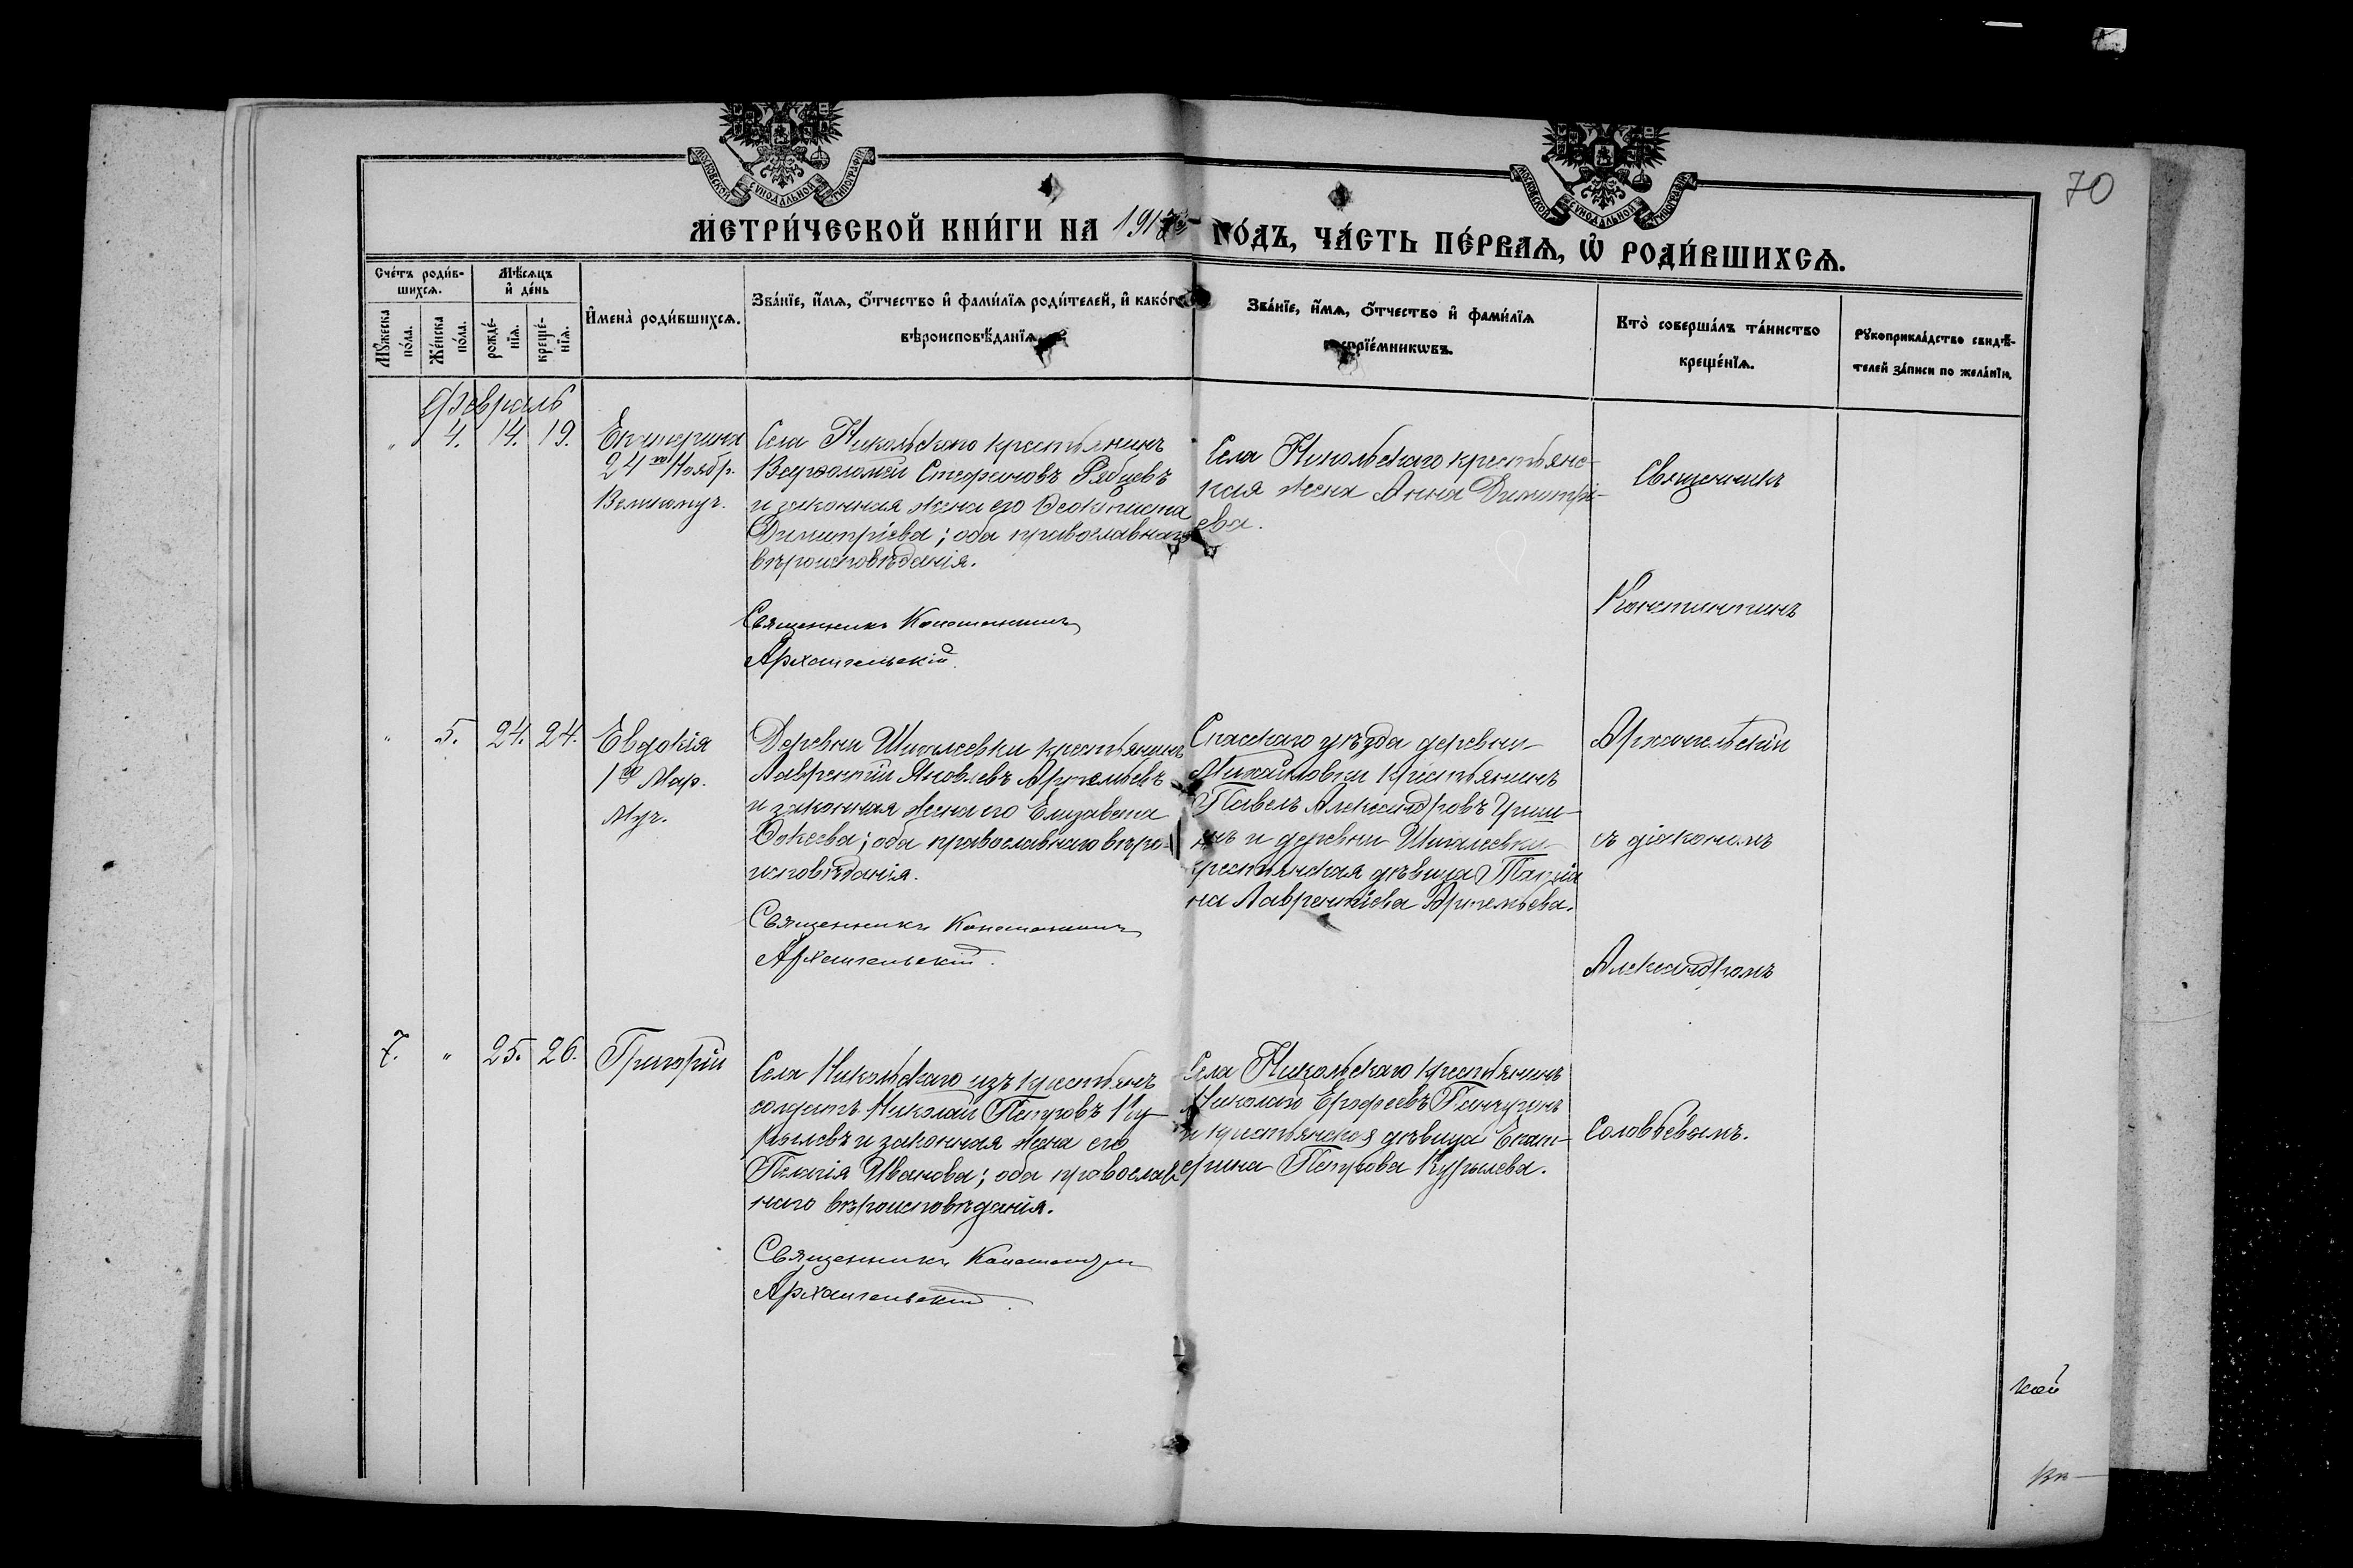 МОСКОВСКОЙ СѴНОДАЛЬНОЙ ТИПОГРАФІИ
МОСКОВСКОЙ СѴНОДАЛЬНОЙ ТИПОГРАФІИ
70
МЕТРИ́ЧЕСКОЙ КНИ́ГИ НА 191 ГО́ДЪ, ЧА́СТЬ ПЕ́РВАѦ, Ѽ РОДИ́ВШИХСѦ.
Сче́тъ роди́в-
шихсѧ.
Мꙋ́жеска по́ла.
Же́нска по́ла.
Мѣ́сѧцъ
и҆ де́нь
рожде́-
нїѧ.
креще́-
нїѧ.
И҆мена̀ роди́вшихсѧ.
Зва́нїе, и҆́мѧ, ѻ҆́тчество и҆ фами́лїѧ роди́телей, и҆ како́гѡ
вѣроисповѣ́данїѧ.
Зва́нїе, и҆́мѧ, ѻ҆́тчество и҆ фами́лїѧ
воспрїе́мникѡвъ.
Кто̀ соверша́лъ та́инство
креще́нїѧ.
Рꙋкоприкла́дство свидѣ́-
телей за́писи по жела́нїю.
Февраль
„ 4. 14. 19.
Екатерина
24го Ноябр.
Великомуч.
Села Никольскаго крестьянинъ
Варѳоломей Стефановъ Рябцевъ
и законная жена его Ѳеоктиста
Димитріева; оба православнаго
вѣроисповѣданія.
Священникъ Константинъ
Архангельскій.
Села Никольскаго крестьянс-
кая жена Анна Димитрі-
ева.
Священникъ
Константинъ
Архангельскій
съ діакономъ
Александромъ
Соловьевымъ.
„ 5. 24. 24.
Евдокія
1го Мар.
Муч.
Деревни Шигалеевки крестьянинъ
Лаврентій Яковлевъ Артемьевъ
и законная жена его Елизавета
Фокеева; оба православнаго вѣро-
исповѣданія.
Священникъ Константинъ
Архангельскій.
Спасскаго уѣзда деревни
Михайловки крестьянинъ
Павелъ Александровъ
и деревни Шигалеевки
крестьянская дѣвица Татіа
на Лаврентіева Артемьева.
7. „ 25. 26.
Григорій
Села Никольскаго изъ крестьянъ
солдатъ Николай Петровъ Ку-
рылевъ и законная жена его
Пелагія Иванова; оба православ
наго вѣроисповѣданія.
Священникъ Константинъ
Архангельскій.
Села Никольскаго крестьянинъ
Николай Ерофеевъ
и крестьянская дѣвица Екат-
ерина Петрова Курылева.
кой